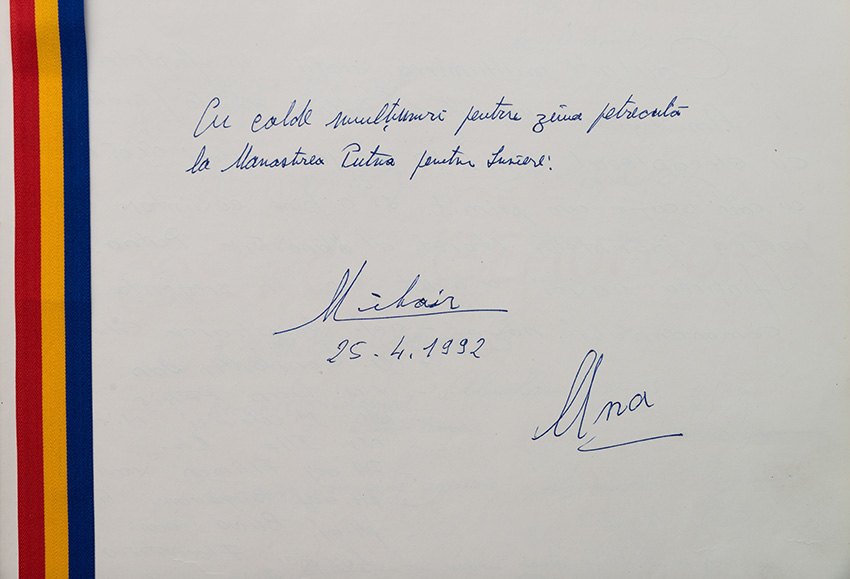 Cu calde mulțumiri pentru ziua petrecută
la Manastirea Putna pentru Inviere!
Mihai R
25.4.1992
Ana